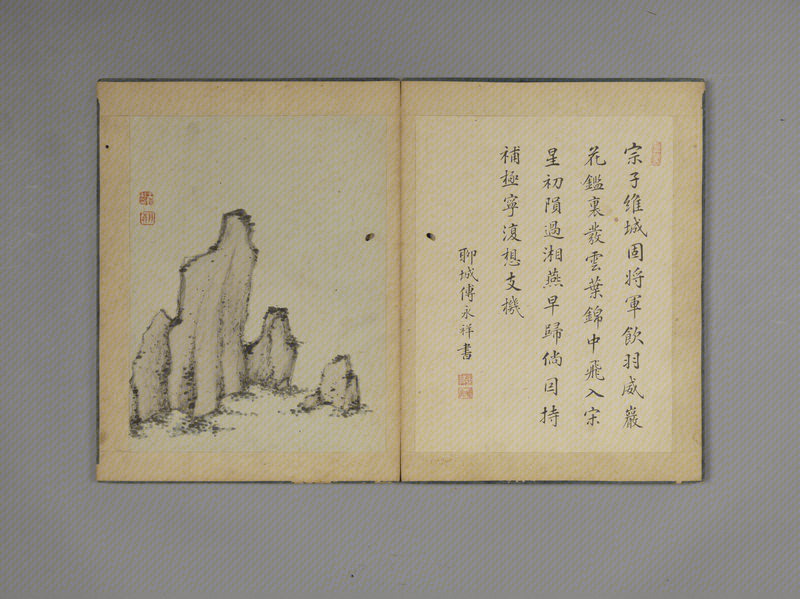 宗子維城固将軍飲羽威巖
花鑑裏發雲葉錦中飛入宋
星初隕過湘燕早歸倘因持
補極寧復想支機
聊城傅永祥書